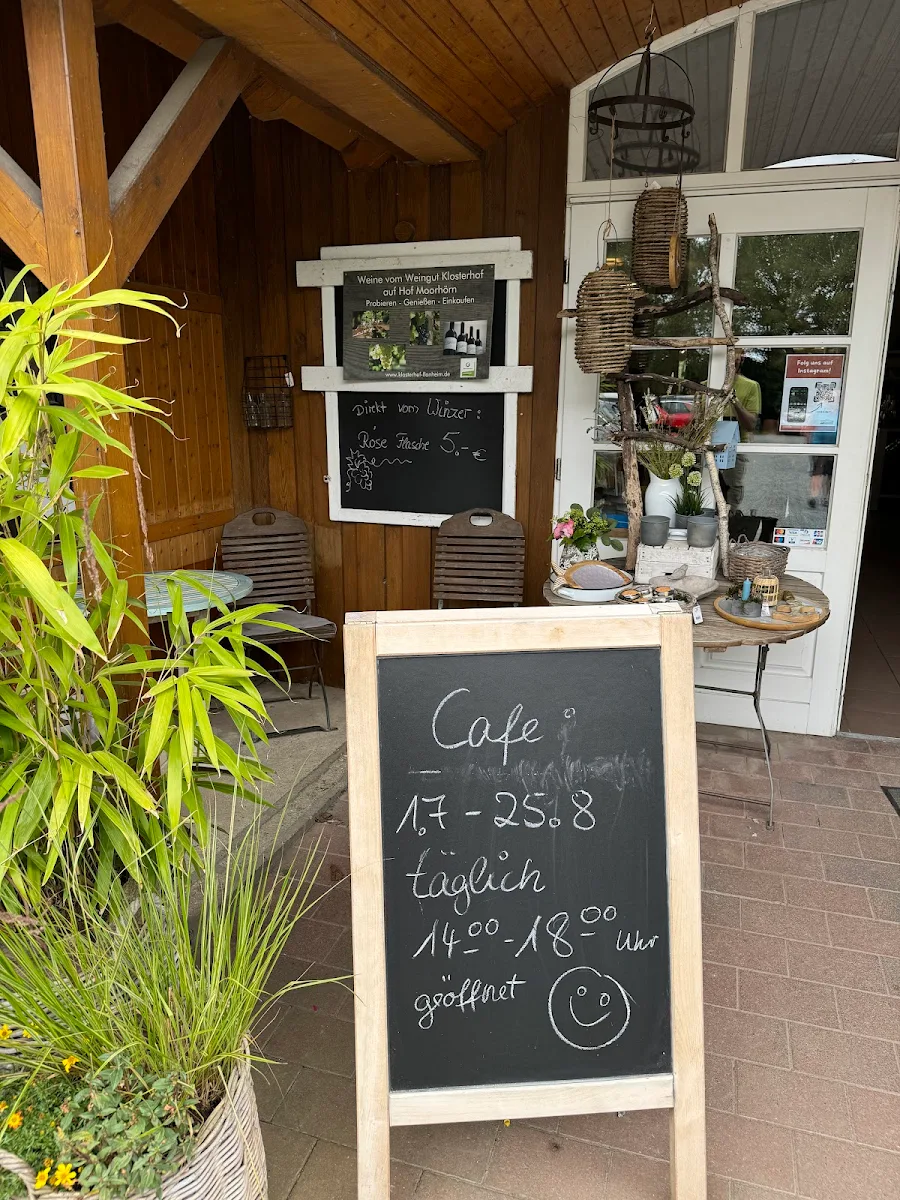 Weine vom Weingut Klosterhof
auf Hof Moorhörn
Probieren - Genießen - Einkaufen
www.klosterhof-Bonheim.de
Direkt vom Winzer:
Rose Flasche 5.- €
Folg uns auf
Instagram!
Cafe:
1.7 - 25.8
täglich
14 00 - 18 00 Uhr
geöffnet